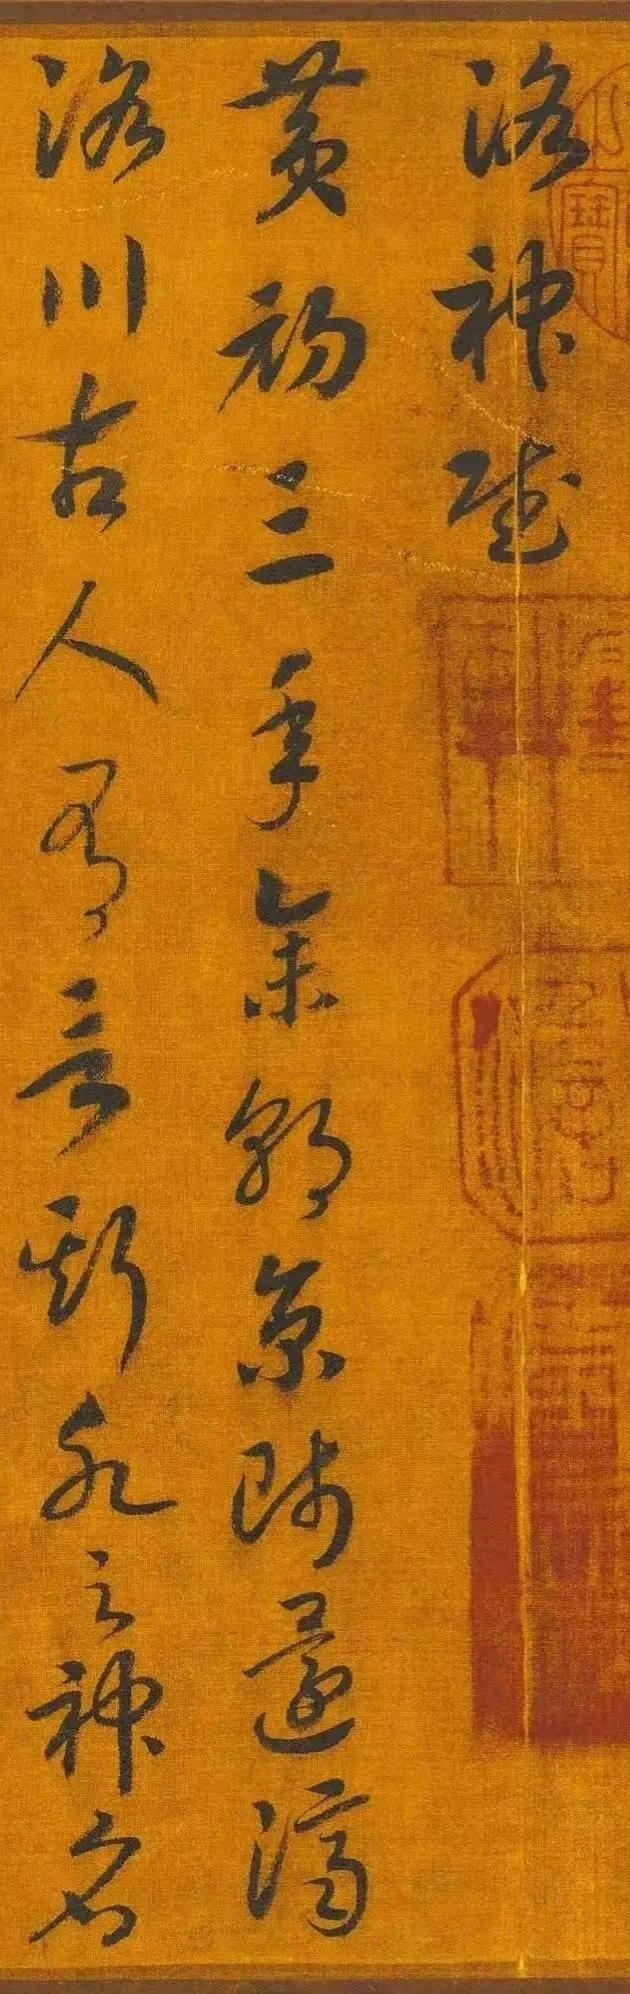 洛神賦
黄初三年余朝京師還濟
洛川古人有言斯水之神名
寶